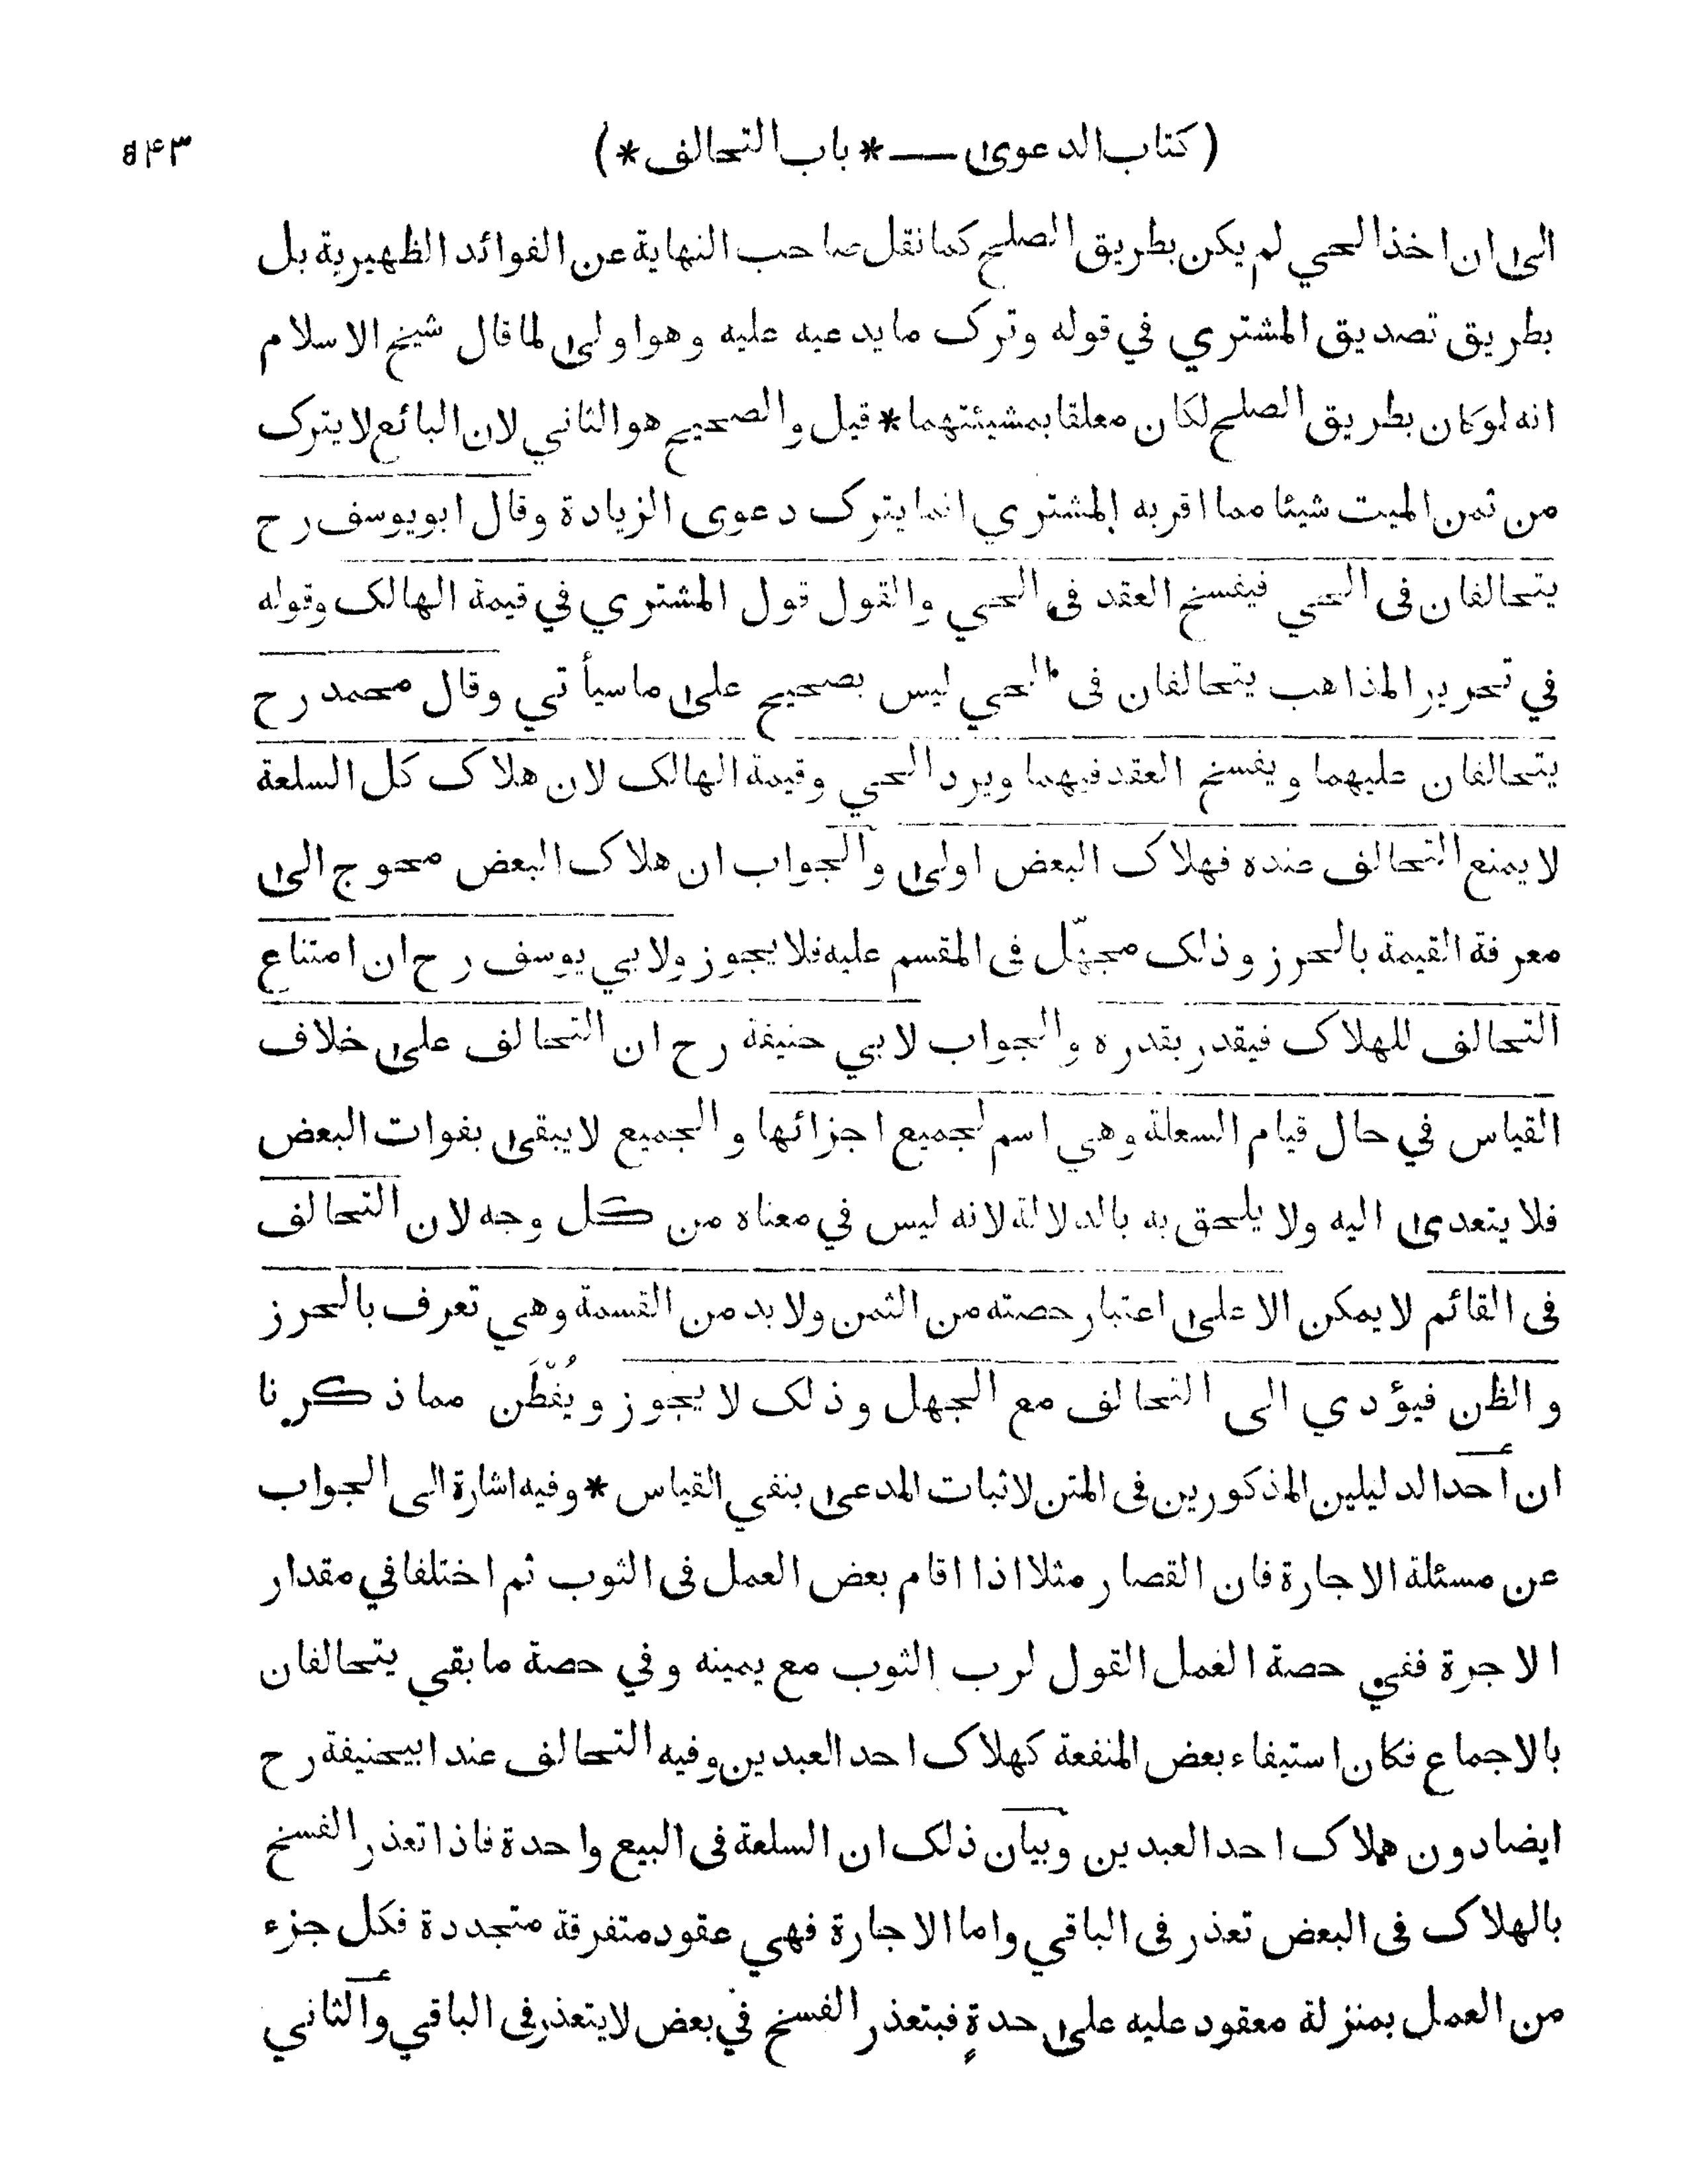 (كتاب الدعوى — * باب التحالف *) ٥٤٣
الى ان اخذ الحي لم يكن بطريق الصلح كما نقل صاحب النهاية عن الفوائد الظهيرية بل
بطريق تصديق المشتري في قوله وترك ما يدعيه عليه وهو اولى لما قال شيخ الاسلام
انه لو كان بطريق الصلح لكان معلقا بمشيئتهما * قيل والصحيح هو الثاني لان البائع لا يترك
من ثمن الميت شيئا مما اقر به المشتري انما يترك دعوى الزيادة وقال ابو يوسف رح
يتحالفان فى الحي فيفسخ العقد فى الحي والقول قول المشتري في قيمة الهالك وقوله
في تحرير المذاهب يتحالفان فى الحي ليس بصحيح على ما سيأتي وقال محمد رح
يتحالفان عليهما ويفسخ العقد فيهما ويرد الحي وقيمة الهالك لان هلاك كل السلعة
لا يمنع التحالف عنده فهلاك البعض اولى والجواب ان هلاك البعض محوج الى
معرفة القيمة بالحرز وذلك مجهّل فى المقسم عليه فلا يجوز ولابي يوسف رح ان امتناع
التحالف للهلاك فيقدر بقدره والجواب لابي حنيفة رح ان التحالف على خلاف
القياس في حال قيام السعلة وهي اسم لجميع اجزائها والجميع لا يبقى بفوات البعض
فلا يتعدى اليه ولا يلحق به بالدلالة لانه ليس في معناه من كل وجه لان التحالف
فى القائم لا يمكن الا على اعتبار حصته من الثمن ولا بد من القسمة وهي تعرف بالحرز
والظن فيؤدي الى التحالف مع الجهل وذلك لا يجوز ويُفْطَن مما ذكرنا
ان احد الدليلين المذكورين فى المتن لاثبات المدعى بنفي القياس * وفيه اشارة الى الجواب
عن مسئلة الاجارة فان القصار مثلا اذا اقام بعض العمل فى الثوب ثم اختلفا في مقدار
الاجرة ففي حصة العمل القول لرب الثوب مع يمينه وفي حصة ما بقي يتحالفان
بالاجماع فكان استيفاء بعض المنفعة كهلاك احد العبدين وفيه التحالف عند ابيحنيفة رح
ايضا دون هلاك احد العبدين وبيان ذلك ان السلعة فى البيع واحدة فاذا تعذر الفسخ
بالهلاك فى البعض تعذر فى الباقي واما الاجارة فهي عقود متفرقة متجددة فكل جزء
من العمل بمنزلة معقود عليه على حدةٍ فبتعذر الفسخ في بعض لا يتعذر فى الباقي والثاني